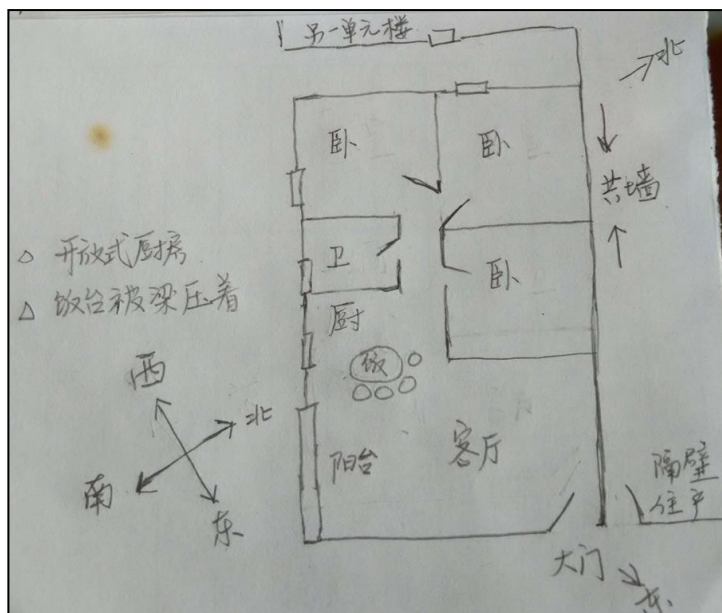 另一单元楼
北
卧
卧
共墙
△ 开放式厨房
卫
卧
△ 饭台被梁压着
厨
西
饭
北
南
阳台
客厅
隔壁
住户
东
大门
东